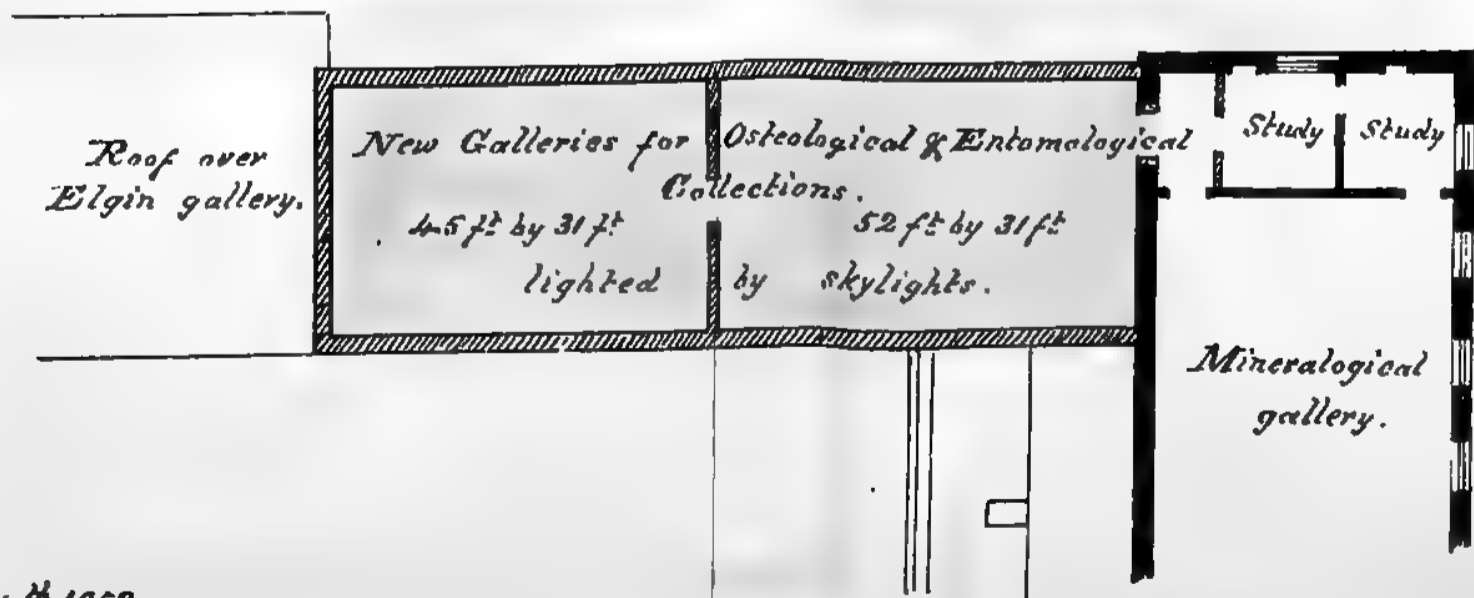 Roof over
Elgin gallery.
New Galleries for Osteological & Entomological
Collections.
45 ft by 31 ft
52 ft by 31 ft
lighted by skylights.
Study
Study
Mineralogical
gallery.